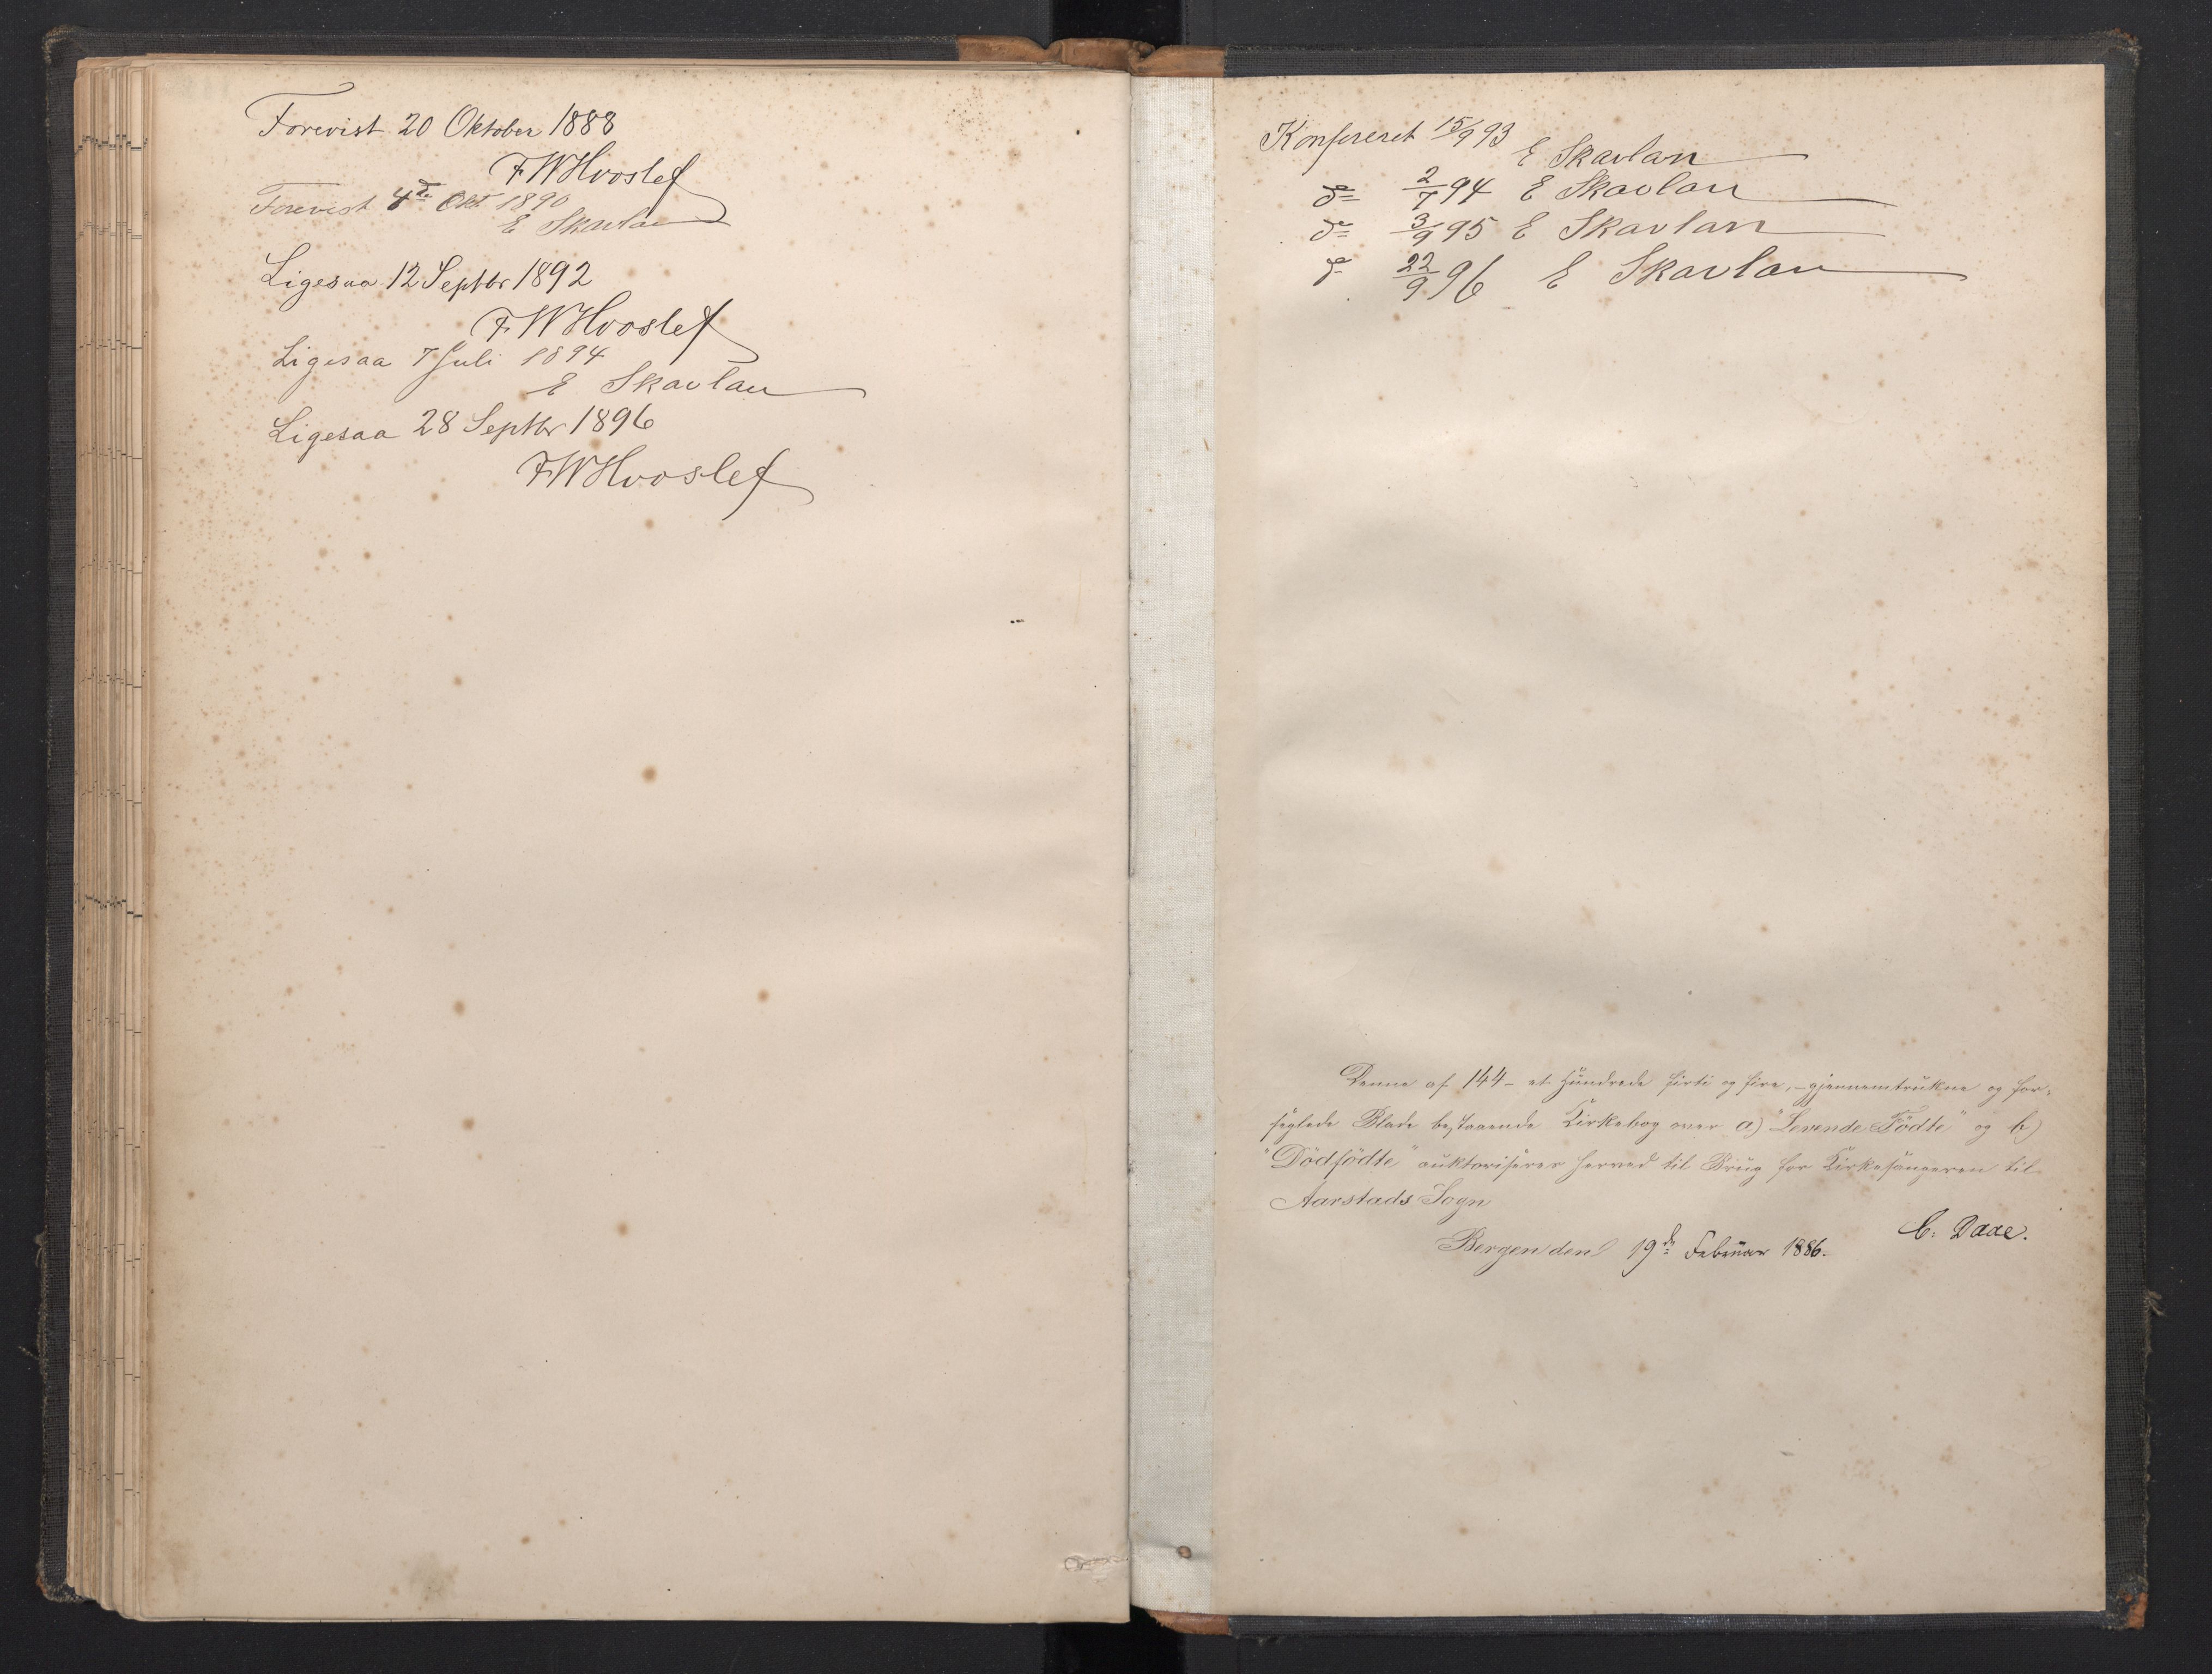 Forevist 20 Oktober 1888
FWHvoslef
Forevist 4de Okt 1890
E Skavlan
Ligesaa 12 Septbr 1892
FWHvoslef
Ligesaa 7 Juli 1894
E Skavlan
Ligesaa 28 Septbr 1896
FWHvoslef
Konfereret 15/9 93
E Skavlan
do 2/7 94 E Skavlan
do 3/9 95 E Skavlan
do 22/9 96 E Skavlan
Denne af 144 - et Hundrede firti og fire, - gjennemtrukne og for-
seglede Blade bestaaende Kirkebog over a) "Levende Födte" og b)
"Dödfödte" auktoriseres herved til Brug for Kirkesangeren til
Aarstads Sogn
Bergen den 19de Februar 1886.
C. Daae.